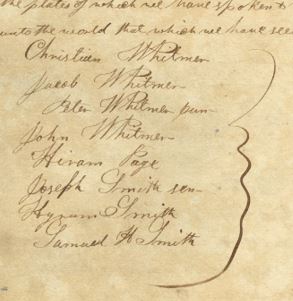 the plates of which we have spoken &
unto the world that which we have see
Christian Whitmer
Jacob Whitmer
Peter Whitmer jun-
John Whitmer
Hiram Page
Joseph Smith sen-
Hyrum Smith
Samuel H Smith